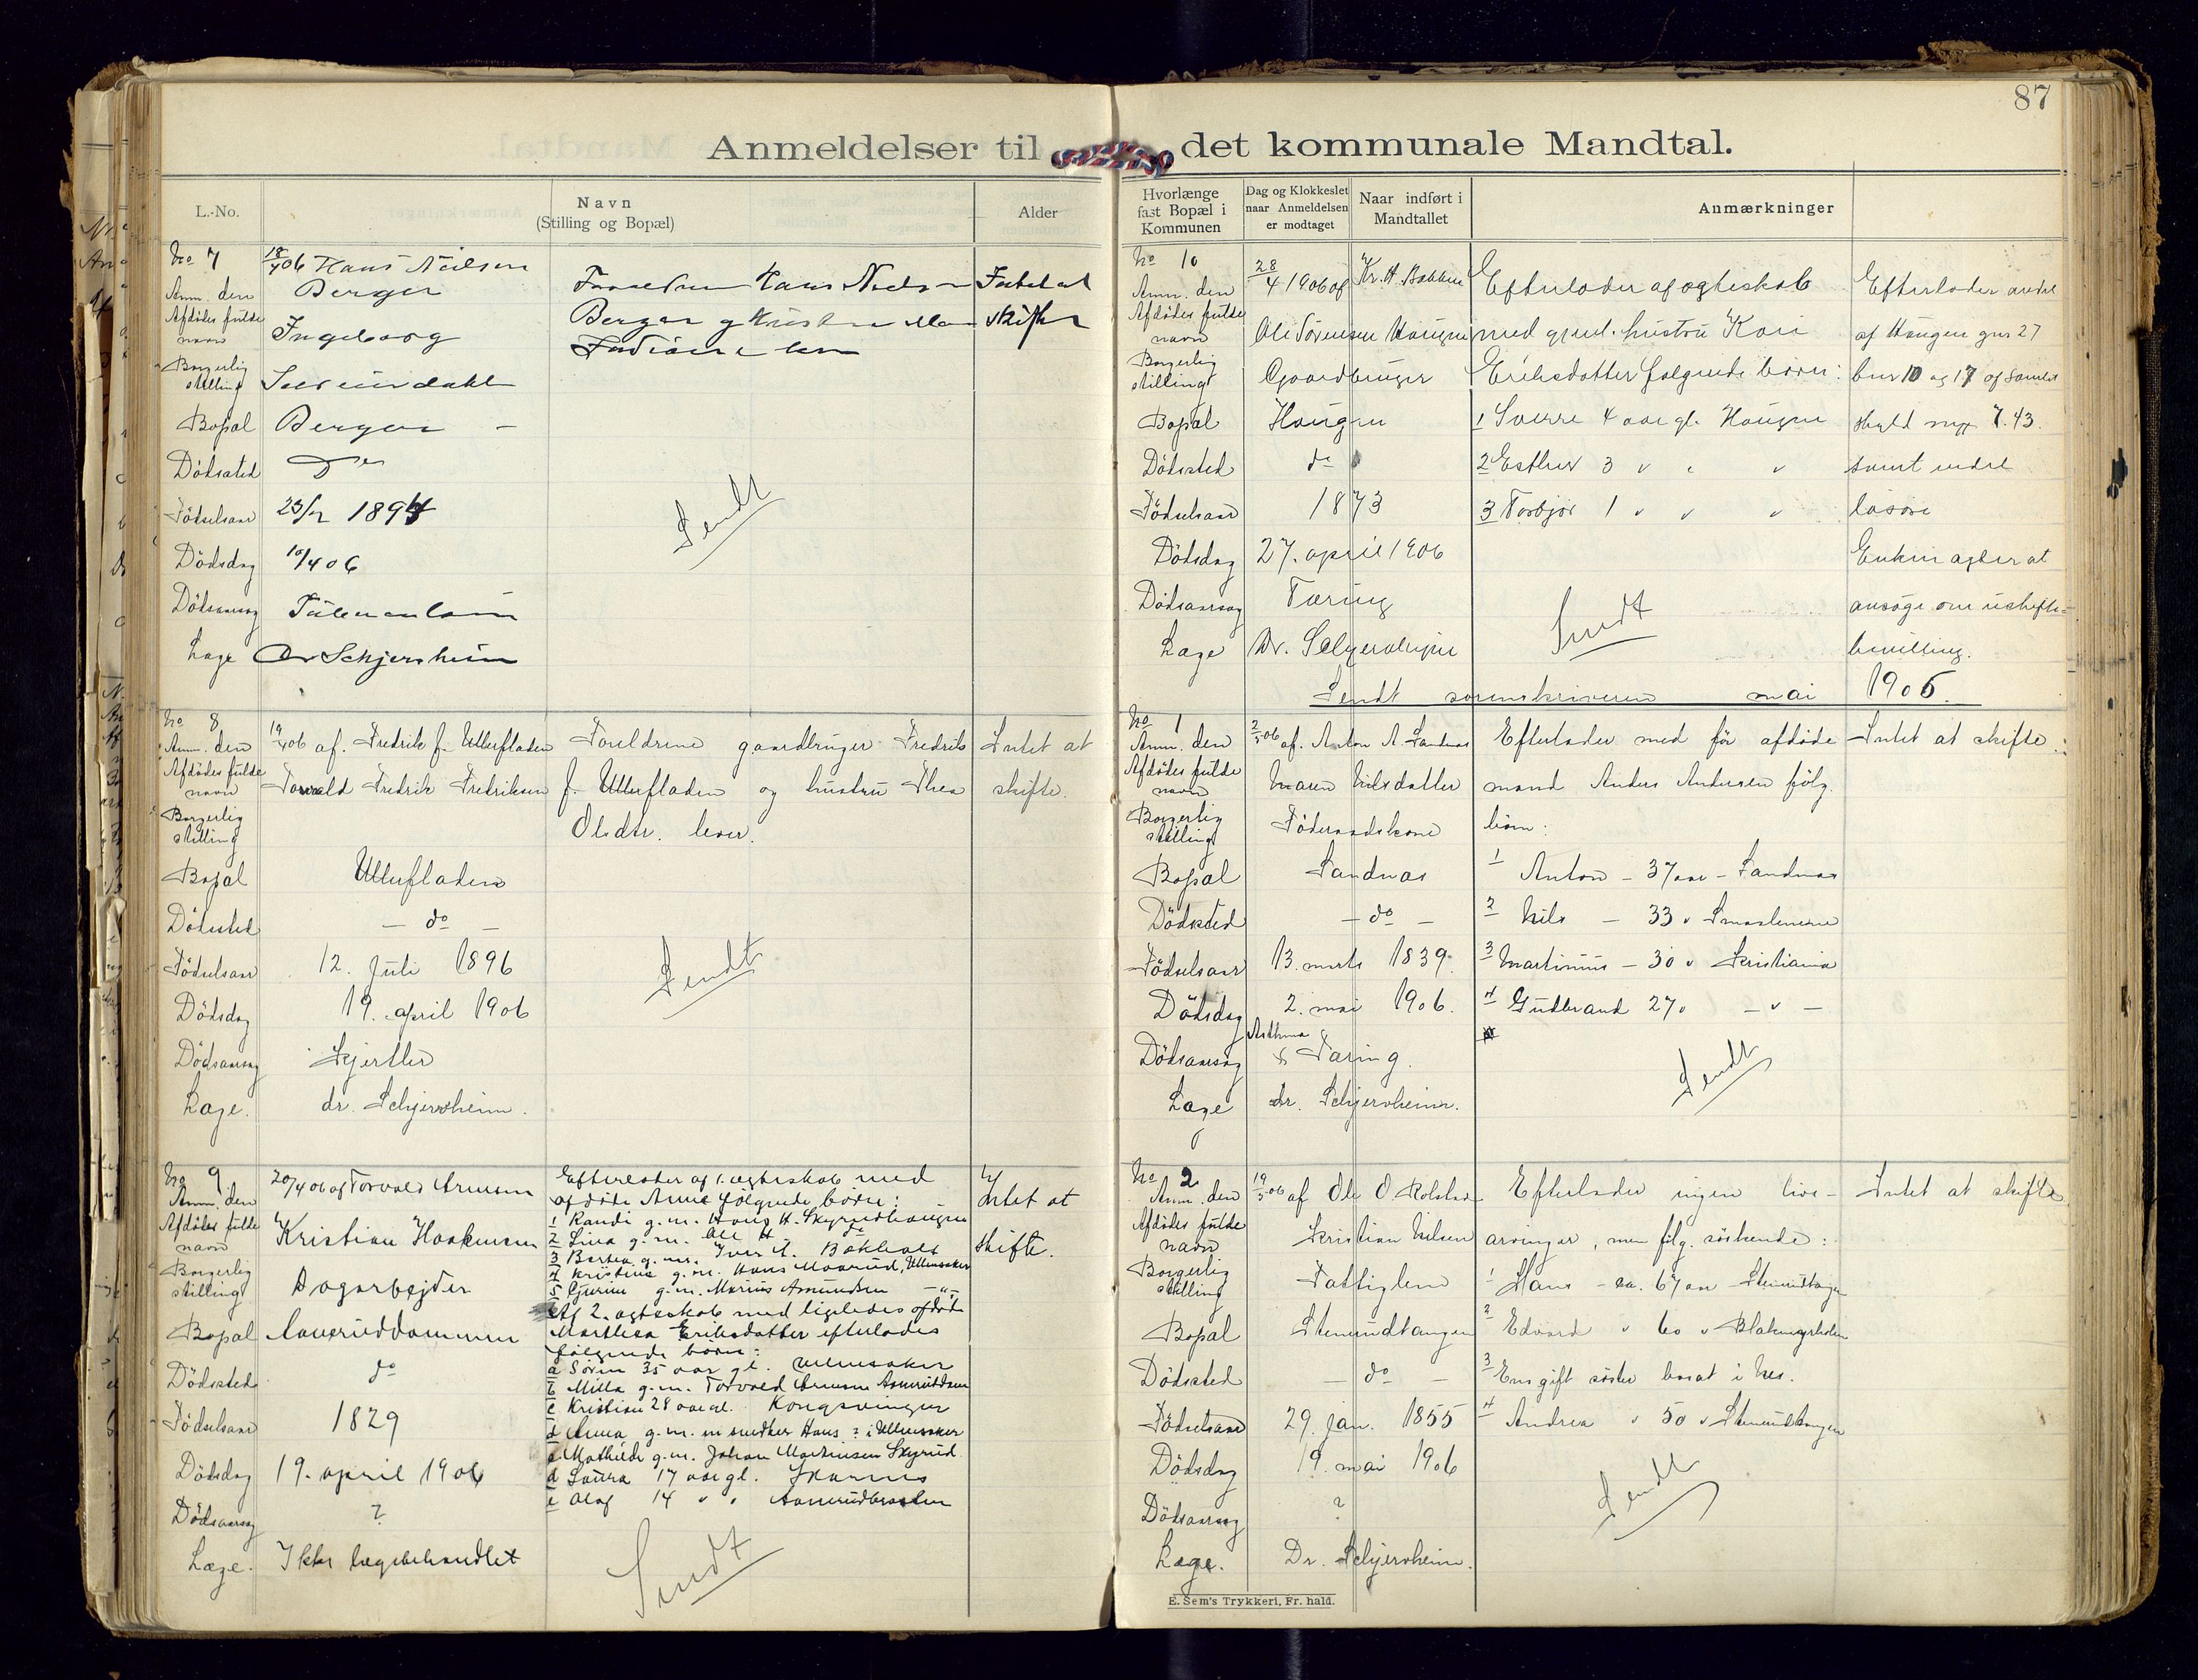 87
Anmeldelser til det kommunale Mandtal.
L.-No.
Navn
(Stilling og Bopæl)
Alder
No 7
18/4 06 Hans Nielsen
Anm. den
Berger
Afdødes fulde
navn
Ingeborg
Borgerlig
stilling
Bopæl
Berger -
Dödssted
Födselsaar
23/2 1894
Dödsdag
10/4 06
Dödsaarsag
Læge
Dr Schjersheim
Hans Nielsen
Berger og
Intet at
skifte
Sendt
No 8
Anm. den
19/4 06 af. Fredrik f. Ullerfladen
Afdödes fulde
navn
Torvald Fredrik Fredriksen
Borgerlig
stilling
Bopæl
Ullerfladen
Dödssted
- do -
Födselsaar
12. juli 1896
Dödsdag
19. april 1906
Dödsaarsag
Kjertler
Læge.
dr. Schjersheim.
Foreldrene gaardbruger Fredrik
f. Ullerfladen og hustru Thea
Olsdtr. lever.
Intet at
skifte.
Sendt
No 9
Anm. den
20/4 06 af Torvald Arnesen
Afdödes fulde
navn
Kristian Haakensen
Borgerlig
stilling
Dagarbejder
Bopæl
Dödssted
do
Födselsaar
1829
Dödsdag
19. april 1906
Dödsaarsag
?
Læge.
Ikke lægebehandlet
Efterlader af 1. ægteskab med
afdöde Anne fölgende börn:
1 Randi g.m. Hans H. Skyrudhaugen
2 Lina g.m. Ole H. do
3 Bertea g.m. Iver A. Bøkholt
4 Kristine g.m. Hans Maarud, Ullensaker
5 Gurine g.m. Marius Asmundsen -"-
Af 2. ægteskab med ligeledes afdöde
Marthea Eriksdatter efterlades
fölgende börn:
a Sören 35 aar gl. Ullensaker
b Milla g.m. Torvald Arnesen
c Kristian 28 aar gl. Kongsvinger
d Anna g.m. m snedker Hans ? i Ullensaker
e Mathilde g.m. Johan Martinsen Skyrud
d Laura 17 aar gl.
e Olaf 14 " "
Intet at
skifte.
Sendt
Hvorlænge
fast Bopæl i
Kommunen
Dag og Klokkeslet
naar Anmeldelsen
er modtaget
Naar indført i
Mandtallet
Anmærkninger
No 10
Anm. den
28/4 1906 af Kr. H. Bakken
Afdödes fulde
navn
Ole Sörensen Haugen
Borgerlig
stilling
Gaardbruger
Bopæl
Haugen
Dödssted
do
Födselsaar
1873
Dödsdag
27. april 1906
Dödsaarsag
Tæring
Læge
Dr. Schjersheim
Efterlader af ægteskab
med gjenl. hustru Kari
Eriksdatter fölgende börn:
1 Sverre 4 aar gl. Haugen
2 Esther 3 " " "
3 Torbjör 1 " " "
Sendt
Efterlader andel
af Haugen gnr 27
bnr 10 og 17 af samlet
skyld mrk 7.43.
samt endel
lösöre
Enken agter at
ansöge om uskifte-
bevilling.
Sendt sorenskriveren mai 1906.
No 1
Anm. den
2/5 06 af. Anton A. Sandnæs
Afdödes fulde
navn
Maren Nilsdatter
Borgerlig
stilling
Föderaadskone
Bopæl
Sandnæs
Dödssted
- do -
Födselsaar
13. marts 1839.
Dödsdag
2. mai 1906.
Dödsaarsag
Asthma &
Tæring.
Læge
dr. Schjersheim.
Efterlader med för afdöde
mand Anders Andersen fölg.
börn:
1 Anton - 37 aar - Sandnæs
2 Nils - 33 "
3 Martinius - 30 " Kristiania
4 Gudbrand 27 " - " -
Sendt
Intet at skifte.
No 2
Anm. den
19/5 06 af Ole O. Kolstad
Afdödes fulde
navn
Kristian Nilsen
Borgerlig
stilling
Fattiglem
Bopæl
Stenrudtangen
Dödssted
- do -
Födselsaar
29. jan. 1855
Dödsdag
19. mai 1906
Dödsaarsag
?
Læge.
Dr. Schjersheim.
Efterlader ingen livs-
arvinger, men fölg. söskende:
1 Hans - ca. 67 aar - Stenrudtangen
2 Edvard " 60 "
3 En gift söster bosat i Nes.
4 Andrea " 50 " Stenrudtangen
Sendt
Intet at skifte
E. Sem's Trykkeri, Fr. hald.